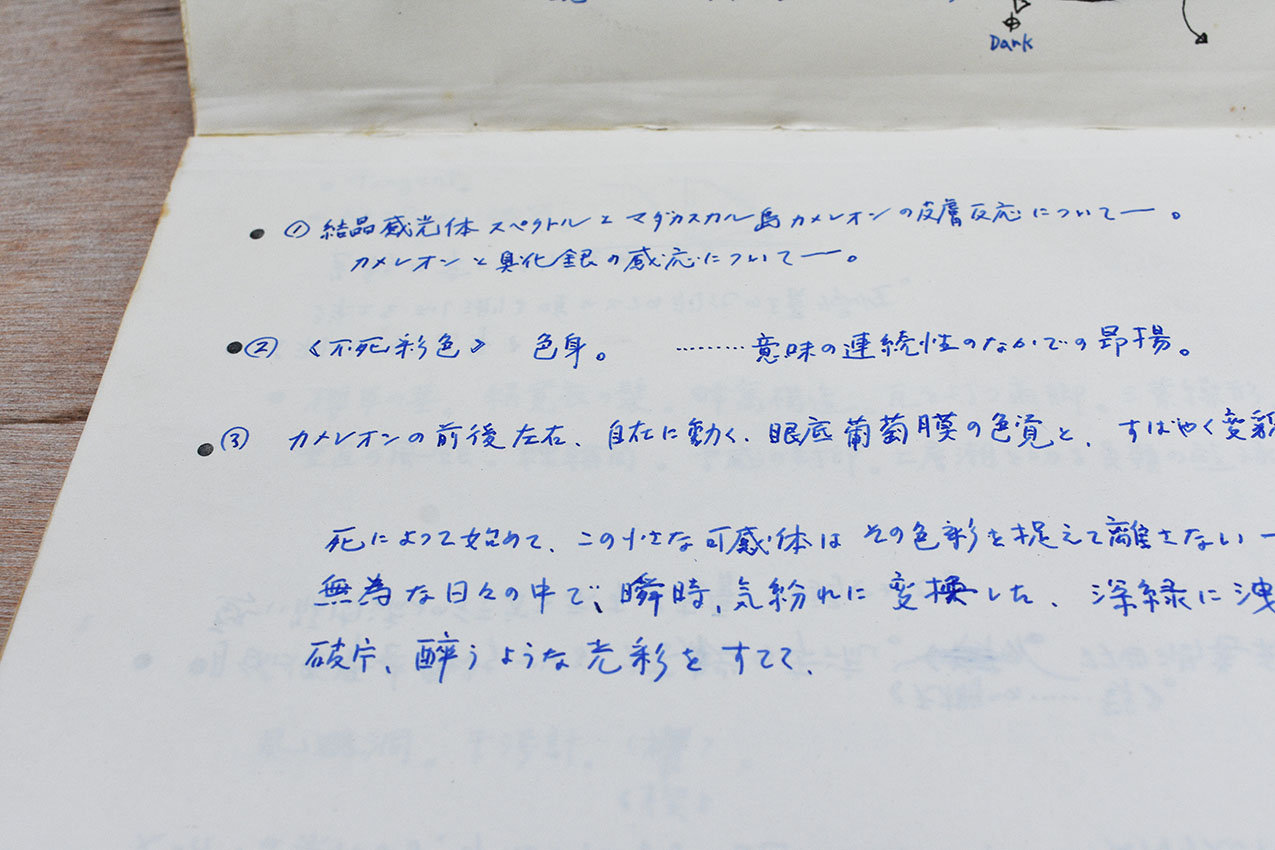 Dark
● ① 結晶感光体スペクトルとマダカスカル島カメレオンの皮膚反応について—。
カメレオンと臭化銀の感応について—。
● ② 《不死彩色》 色身。 ………意味の連続性のなかでの昂揚。
● ③ カメレオンの前後左右、自在に動く、眼底葡萄膜の色覚と、すばやく変貌
死によって始めて、この小さな可感体はその色彩を捉えて離さない—
無為な日々の中で、瞬時、気紛れに変換した、深緑に洩
破片、酔うような光彩をすてて、